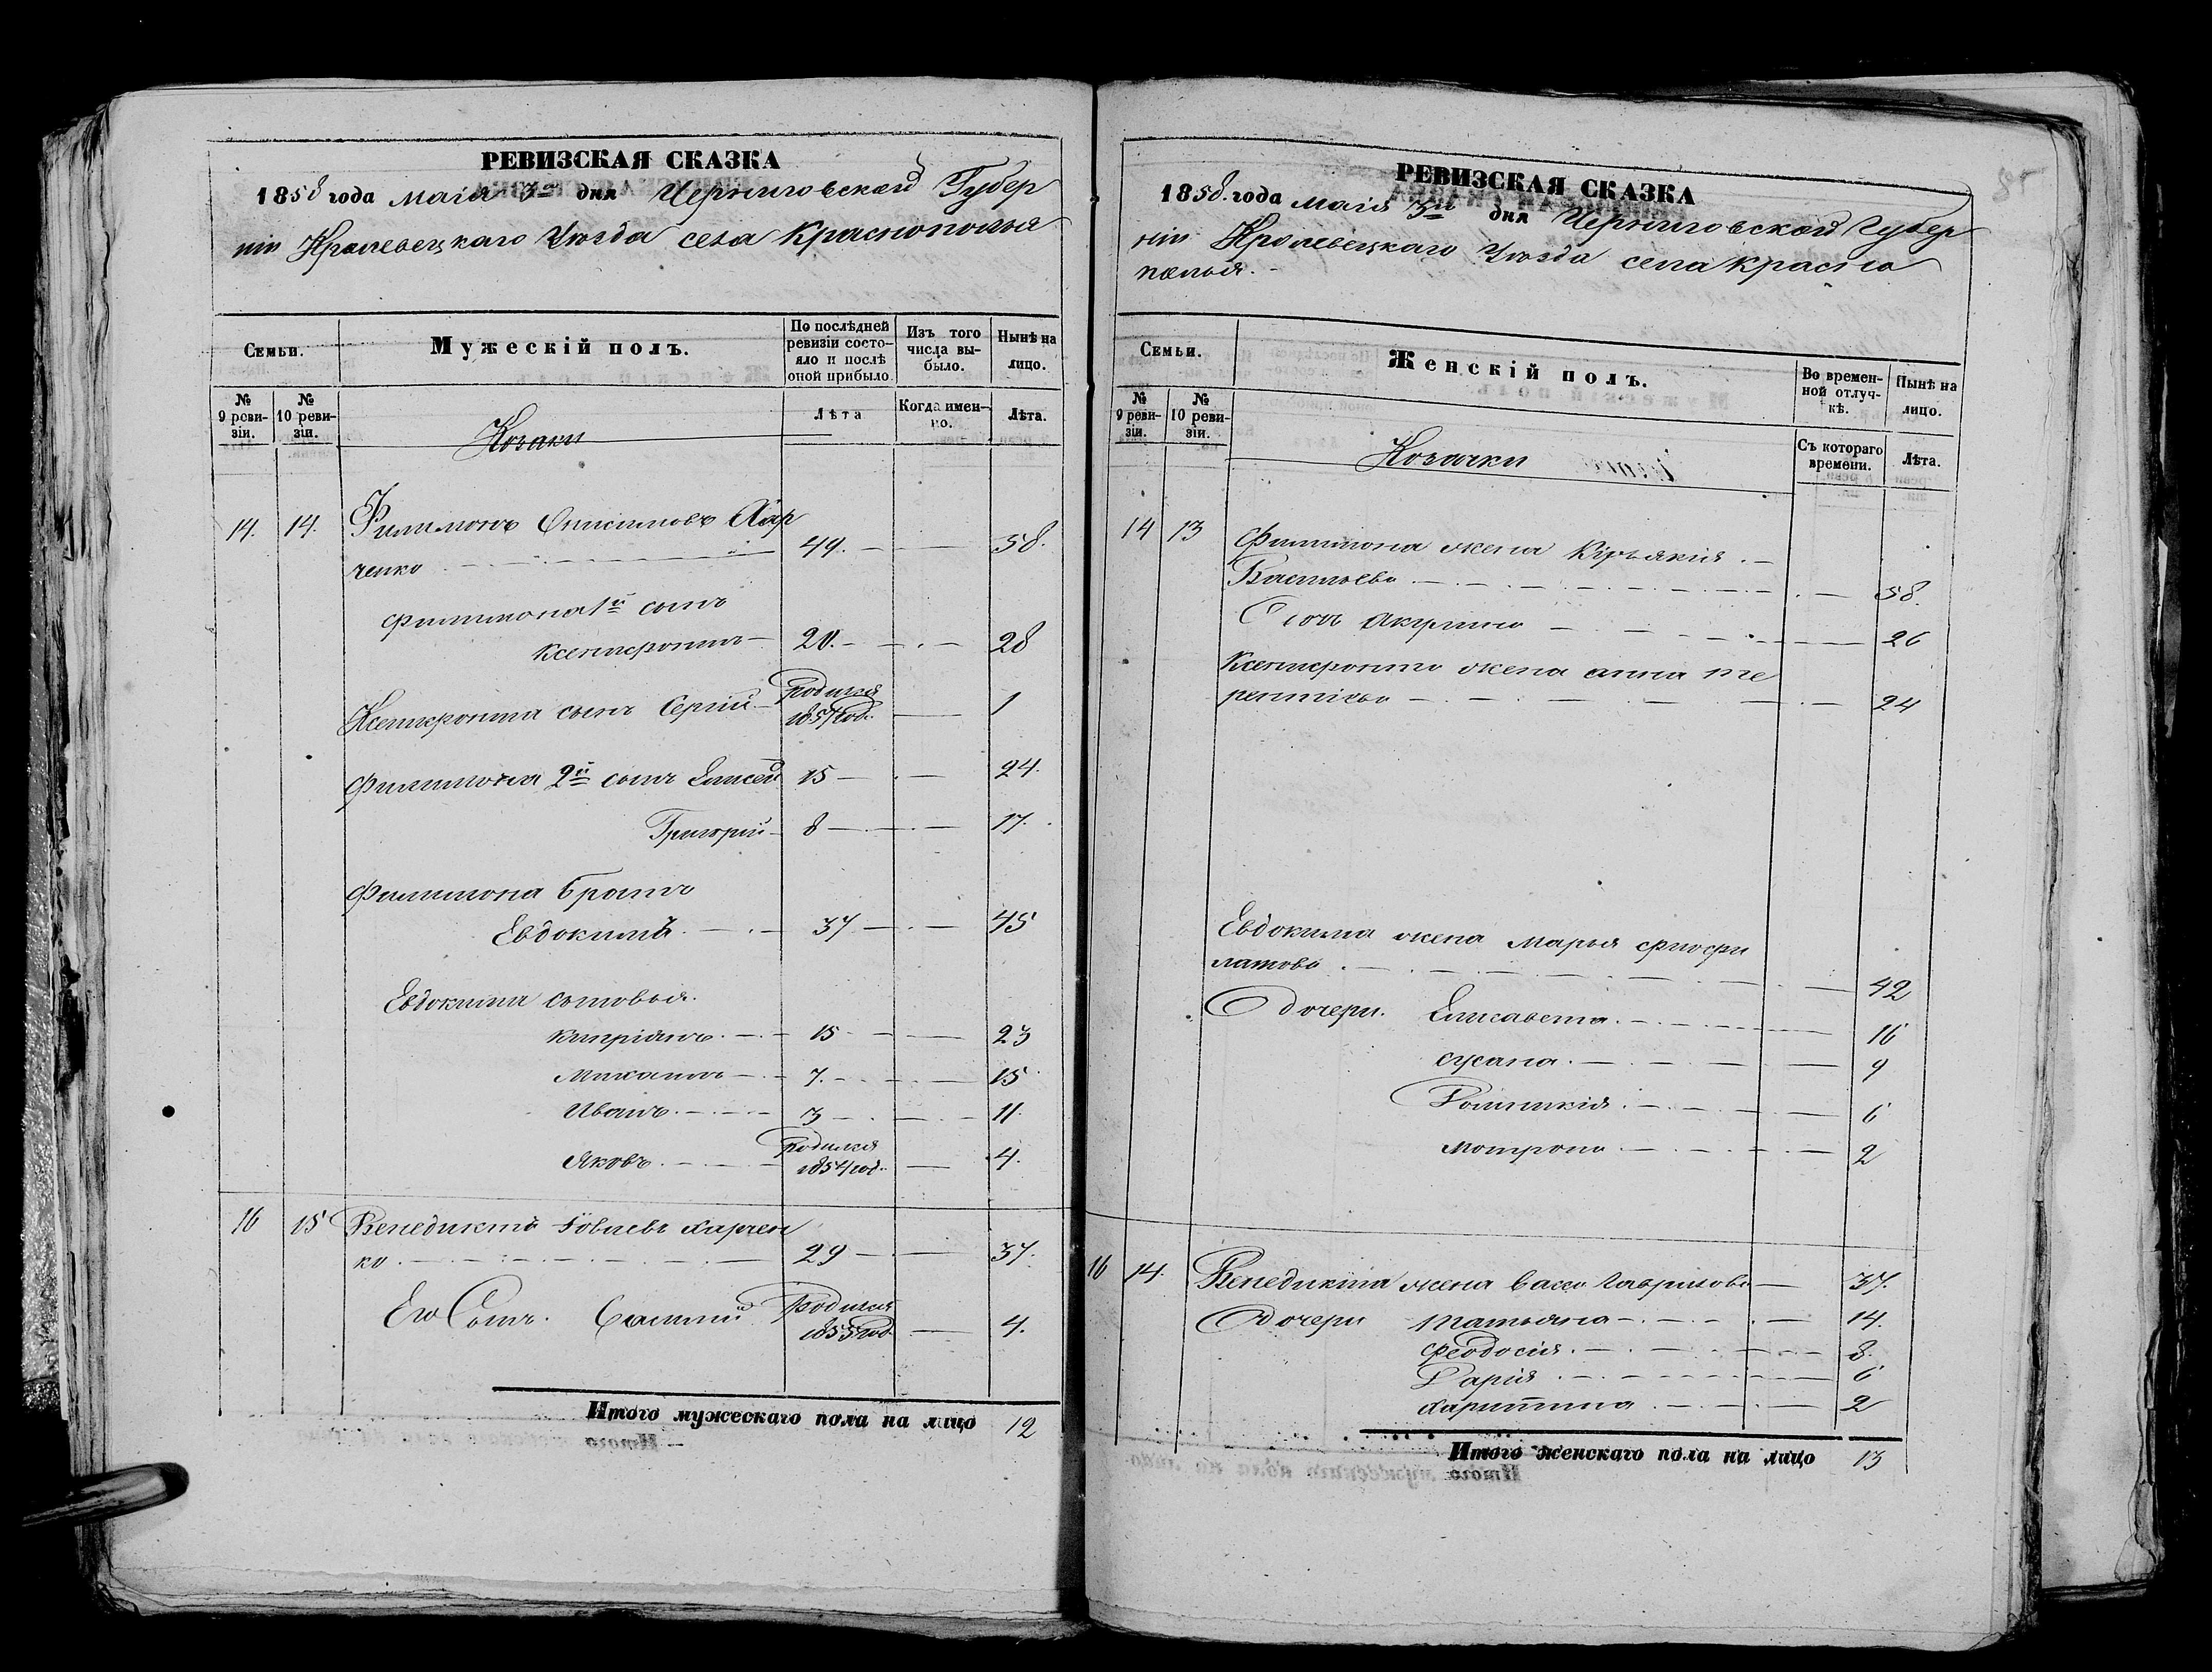 РЕВИЗСКАЯ СКАЗКА
1858 года маія 3го дня Черниговской Губер
ніи Кролевецкаго Уѣзда села Краснополья
Семьи.
Мужескій полъ.
По послѣдней ревизіи состояло и послѣ оной прибыло.
Изъ того числа выбыло.
Нынѣ на лицо.
№ 9 ревизіи.
№ 10 ревизіи.
Козаки
Лѣта
Когда именно.
Лѣта.
14. 14. Филимонъ Онисимовъ Хар
ченко 49. 58.
Филимона 1й сынъ
Ксенофонтъ 20. 28
Ксенофонта сынъ Сергій Родился 1857 год. 1
Филимона 2й сынъ Елисей 15 24.
Григорій 8 17.
Филимона братъ
Евдокимъ 37 45
Евдокима сыновья.
Кипріянъ 15 23
Михаилъ 7. 15
Иванъ 3 11.
Яковъ Родился 1854 год. 4.
16 15 Венедиктъ Іовлевъ Харчен
ко 29 37.
Его Сынъ. Родился 1855 год. 4.
Итого мужескаго пола на лицо 12
РЕВИЗСКАЯ СКАЗКА
1858. года маія 3го дня Черниговской Губер
ніи Кролевецкаго Уѣзда села Красно
полья.
Семьи.
Женскій полъ.
Во временной отлучкѣ.
Нынѣ на лицо.
№ 9 ревизіи.
№ 10 ревизіи.
Козачки
Съ котораго времени.
Лѣта.
14 13 Филимона жена Киръякія
Васильева 58.
Дочь Акулина 26
Ксенофонта жена анна те
рентіева 24
Евдокима жена Марья Фиофи
латова 42
Дочери. Елисавета 16
сусана 9
6
мотрона 2
16 14. Венедикта жена Васса Гаврилова 37.
Дочери Татьяна 14.
Феодосія 8.
Дарія 6
Харитина 2
Итого женскаго пола на лицо 13